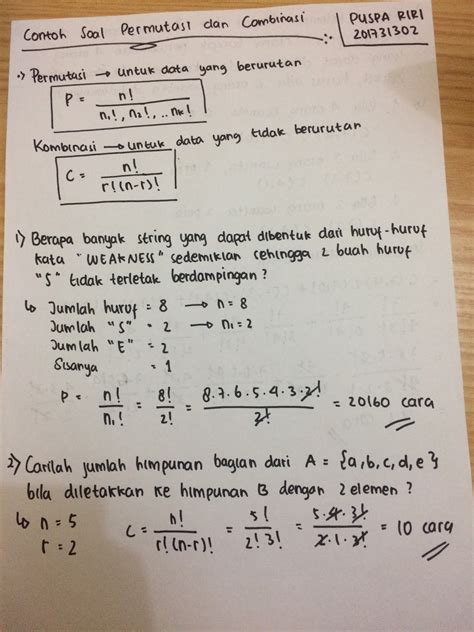 Contoh Soal Permutasi dan Combinasi
PUSPA RIRI
201731302
•) Permutasi → untuk data yang berurutan
P = n! / n₁!, n₂!, ..nₖ!
Kombinasi → untuk data yang tidak berurutan
C = n! / r!(n-r)!
1) Berapa banyak string yang dapat dibentuk dari huruf-huruf
kata "WEAKNESS" sedemikian sehingga 2 buah huruf
"S" tidak terletak berdampingan?
↳ Jumlah huruf = 8 → n = 8
Jumlah "S" = 2 → n₁ = 2
Jumlah "E" = 2
Sisanya = 1
P = n! / n₁! = 8! / 2! = 8.7.6.5.4.3.2! / 2! = 20160 cara
2) Carilah jumlah himpunan bagian dari A = {a,b,c,d,e}
bila diletakkan ke himpunan B dengan 2 elemen?
↳ n = 5
r = 2
C = n! / r!(n-r)! = 5! / 2! 3! = 5.4.3! / 2.1.3! = 10 cara